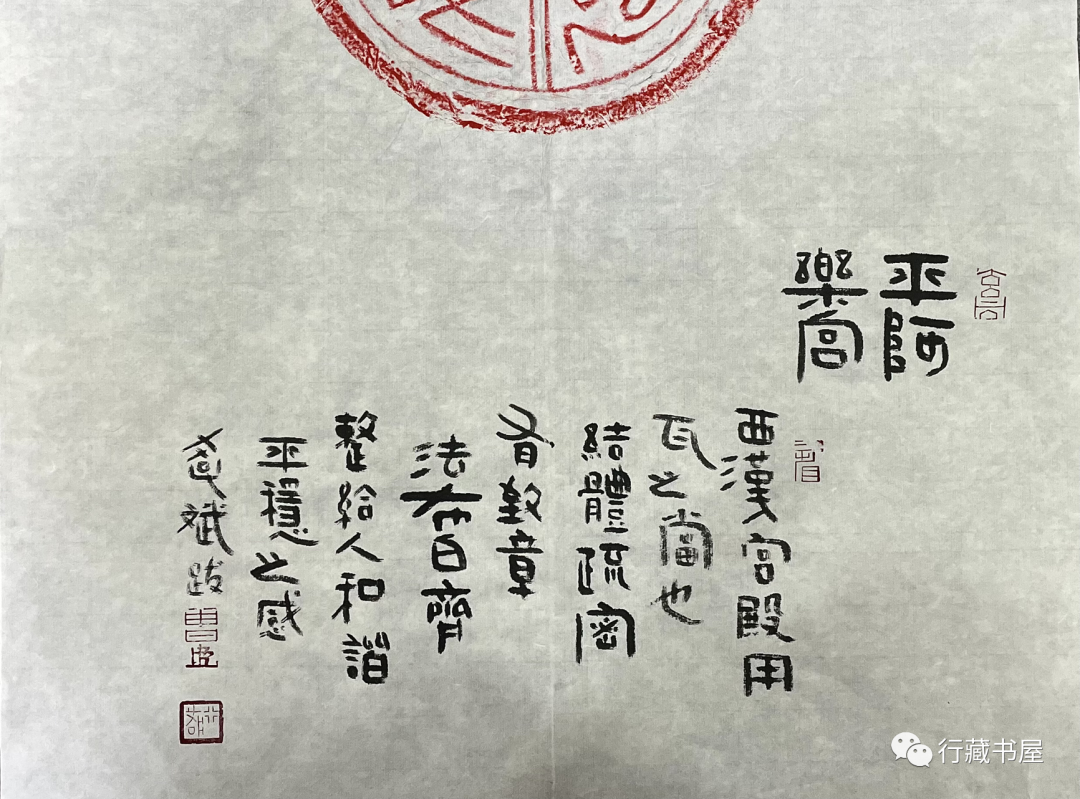 平阿
樂宮
西漢宮殿用
瓦之當也
結體疏密
有致章
法布白齊
整給人和諧
平穩之感
斌跋
行藏书屋